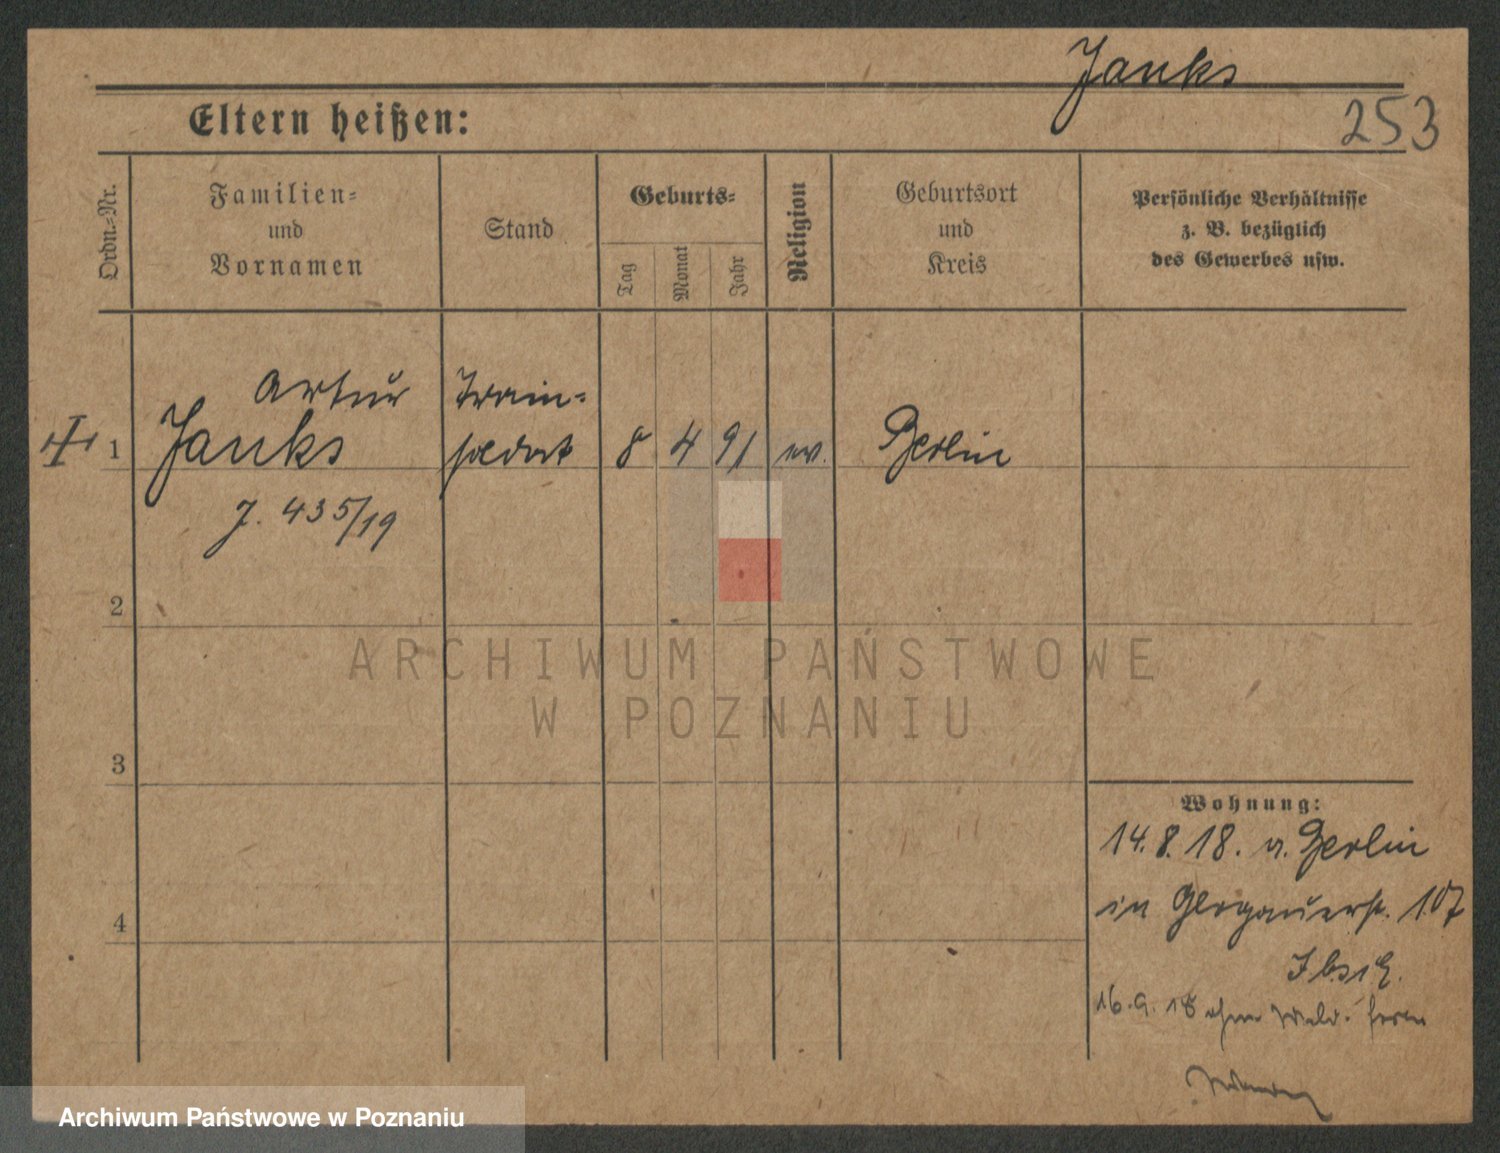 Janks
253
Eltern heißen:
Ordn.-Nr.
Familien-
und
Vornamen
Stand
Geburts-
Tag
Monat
Jahr
Religion
Geburtsort
und
Kreis
Persönliche Verhältnisse
z. B. bezüglich
des Gewerbes usw.
Artur Train-
1 Janks soldat 8 4 91 ev. Berlin
J. 435/19
2
ARCHIWUM PAŃSTWOWE
W POZNANIU
3
Wohnung:
14.8.18. a. Berlin
in Glogauerst. 107
4
16.9.18 ohne
Archiwum Państwowe w Poznaniu